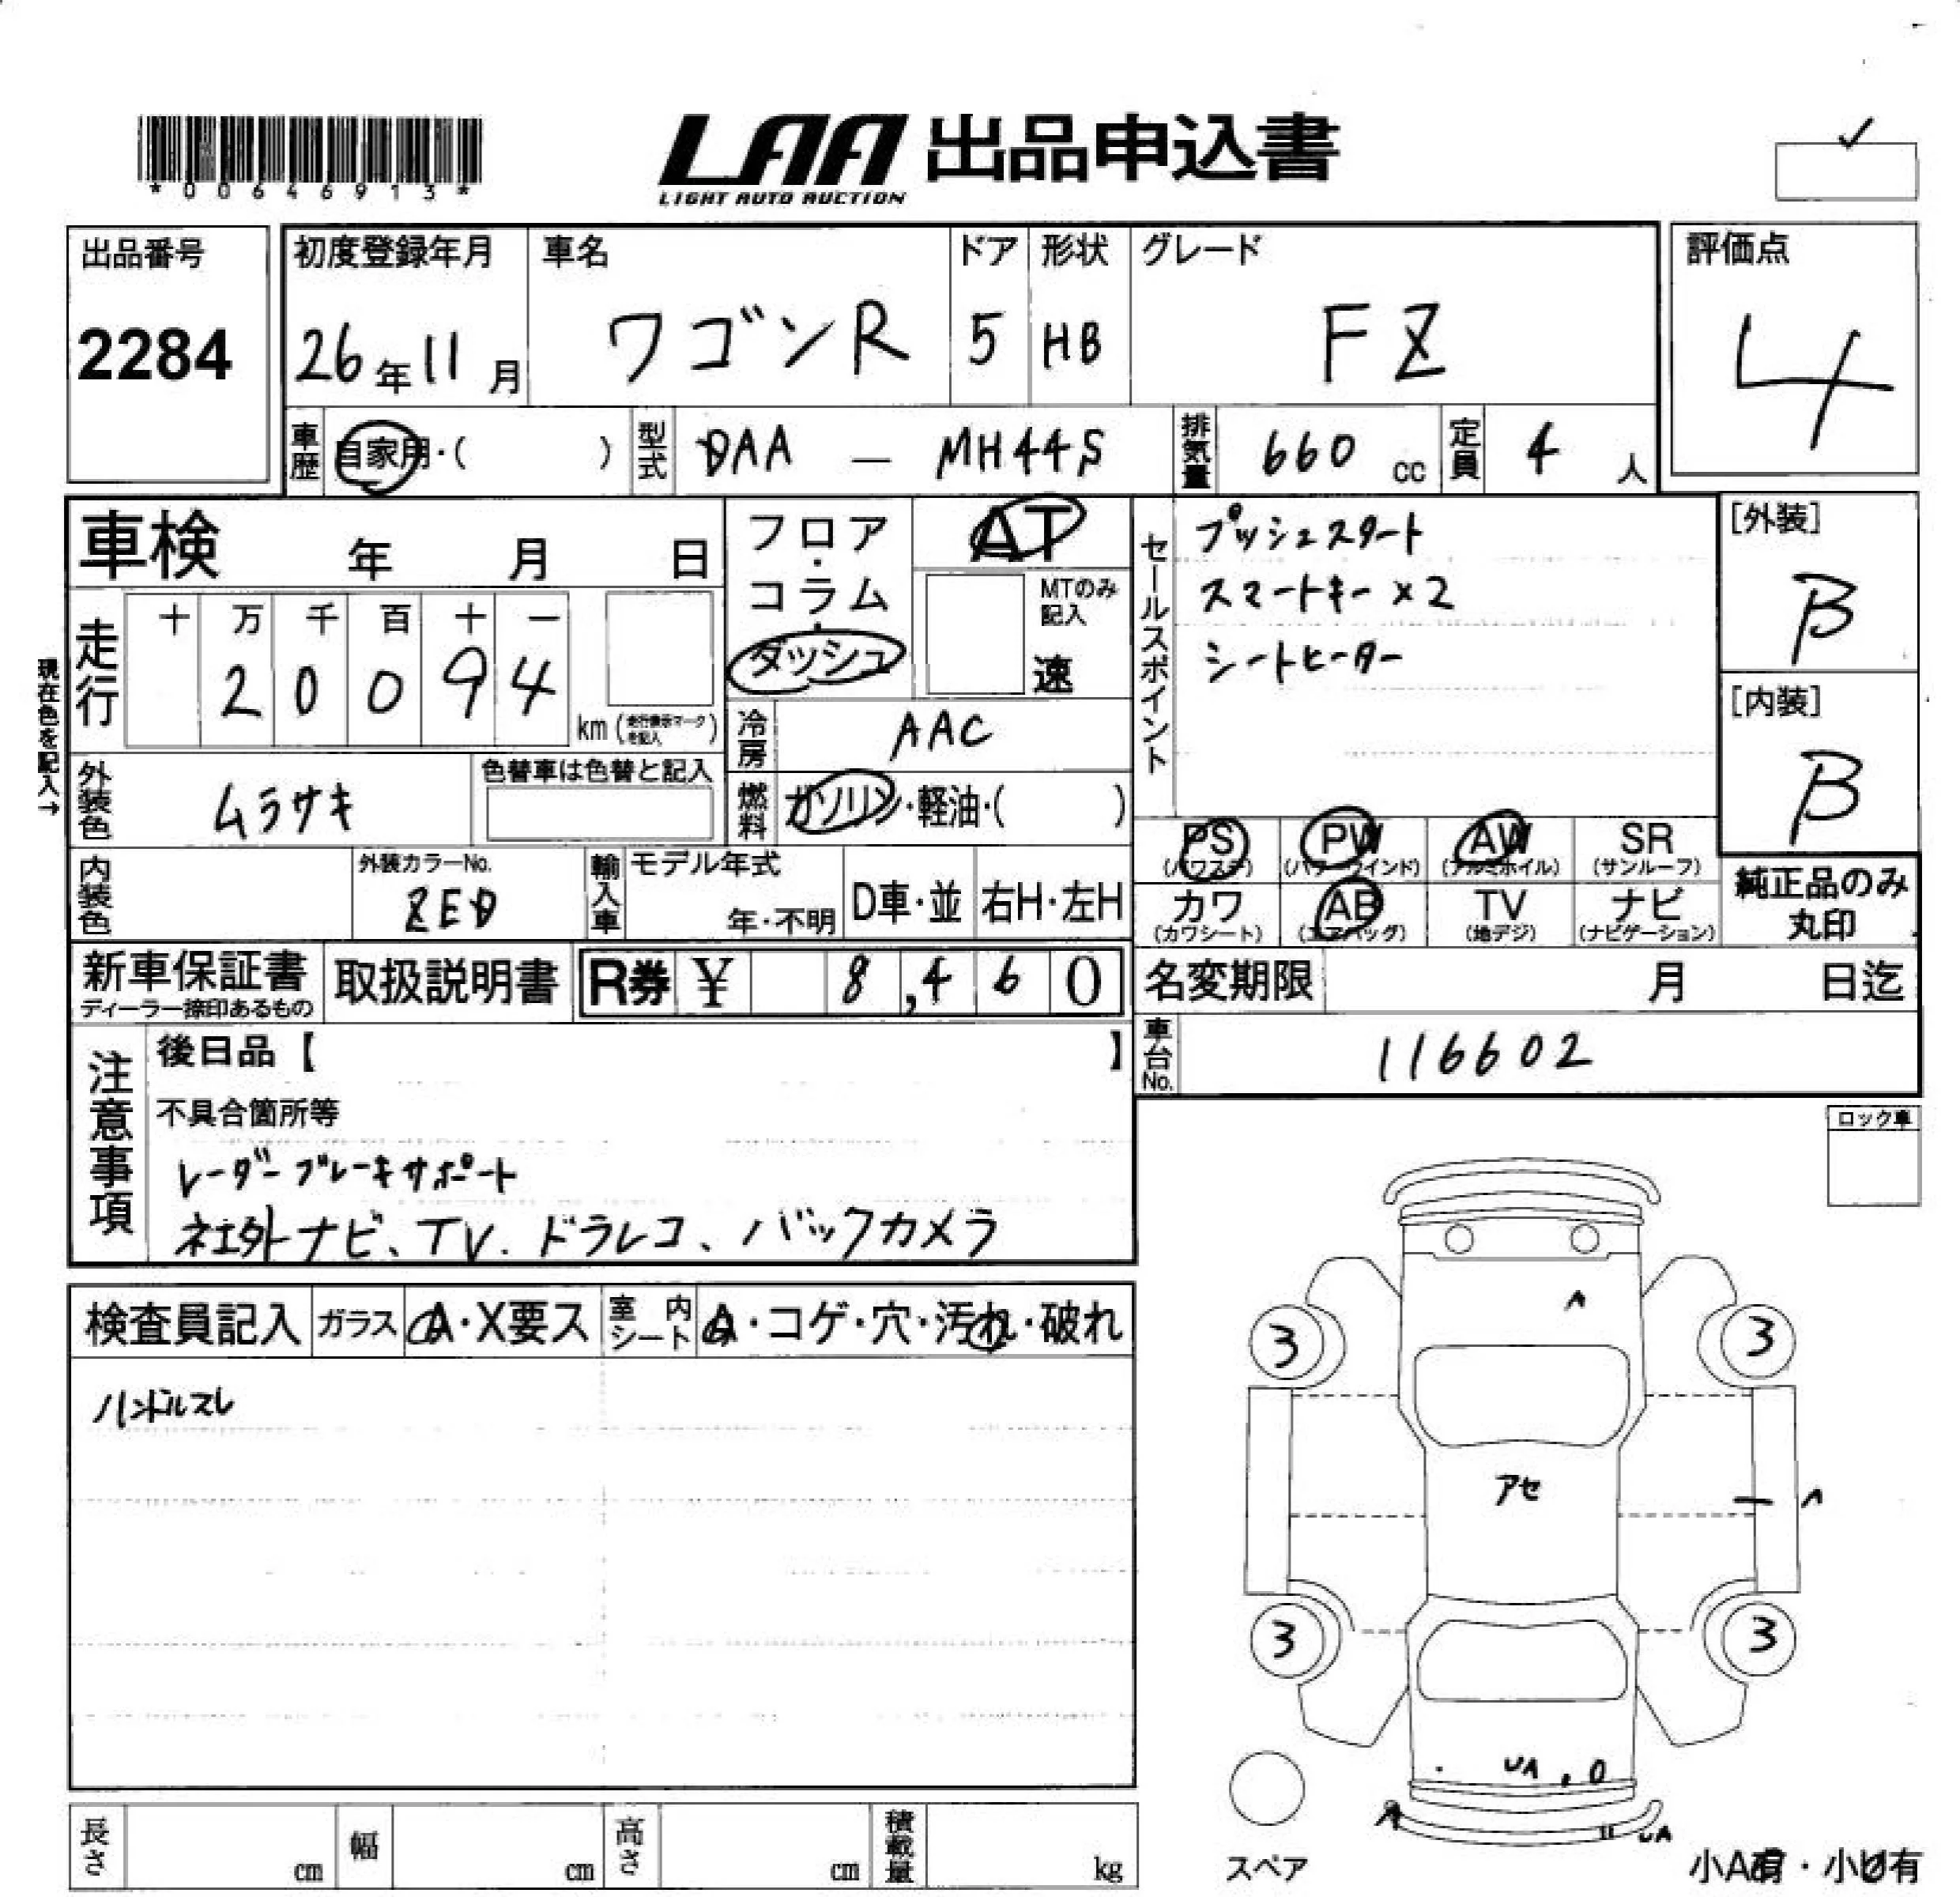 *00646913*
LAA 出品申込書
LIGHT AUTO AUCTION
出品番号
2284
初度登録年月
26年11月
車名
ワゴンR
ドア
5
形状
HB
グレード
FZ
評価点
4
車歴 自家用・( )
型式 DAA — MH44S
排気量 660 cc
定員 4 人
車検 年 月 日
フロア・コラム・ダッシュ
AT
MTのみ記入
速
セールスポイント
プッシュスタート
スマートキー×2
シートヒーター
[外装]
B
[内装]
B
現在色を記入→
走行
十 万 千 百 十 一
2 0 0 9 4
km (走行表示マークを記入)
冷房 AAC
外装色 ムラサキ
色替車は色替と記入
燃料 ガソリン・軽油・( )
PS (パワステ)
PW (パワーウインド)
AW (アルミホイル)
SR (サンルーフ)
カワ (カワシート)
AB (エアバッグ)
TV (地デジ)
ナビ (ナビゲーション)
純正品のみ丸印
内装色
外装カラーNo.
ZED
輸入車
モデル年式
年・不明
D車・並
右H・左H
新車保証書
ディーラー捺印あるもの
取扱説明書
R券 ¥ 8,460
名変期限 月 日迄
車台No. 116602
注意事項
後日品【 】
不具合箇所等
レーダーブレーキサポート
社外ナビ、TV、ドラレコ、バックカメラ
ロック車
検査員記入
ガラス
A・X要ス
室内シート
A・コゲ・穴・汚れ・破れ
ハンドルスレ
A
3
3
アセ
A
3
3
UA
A
U
UA
スペア
小A有・小U有
長さ cm
幅 cm
高さ cm
積載量 kg